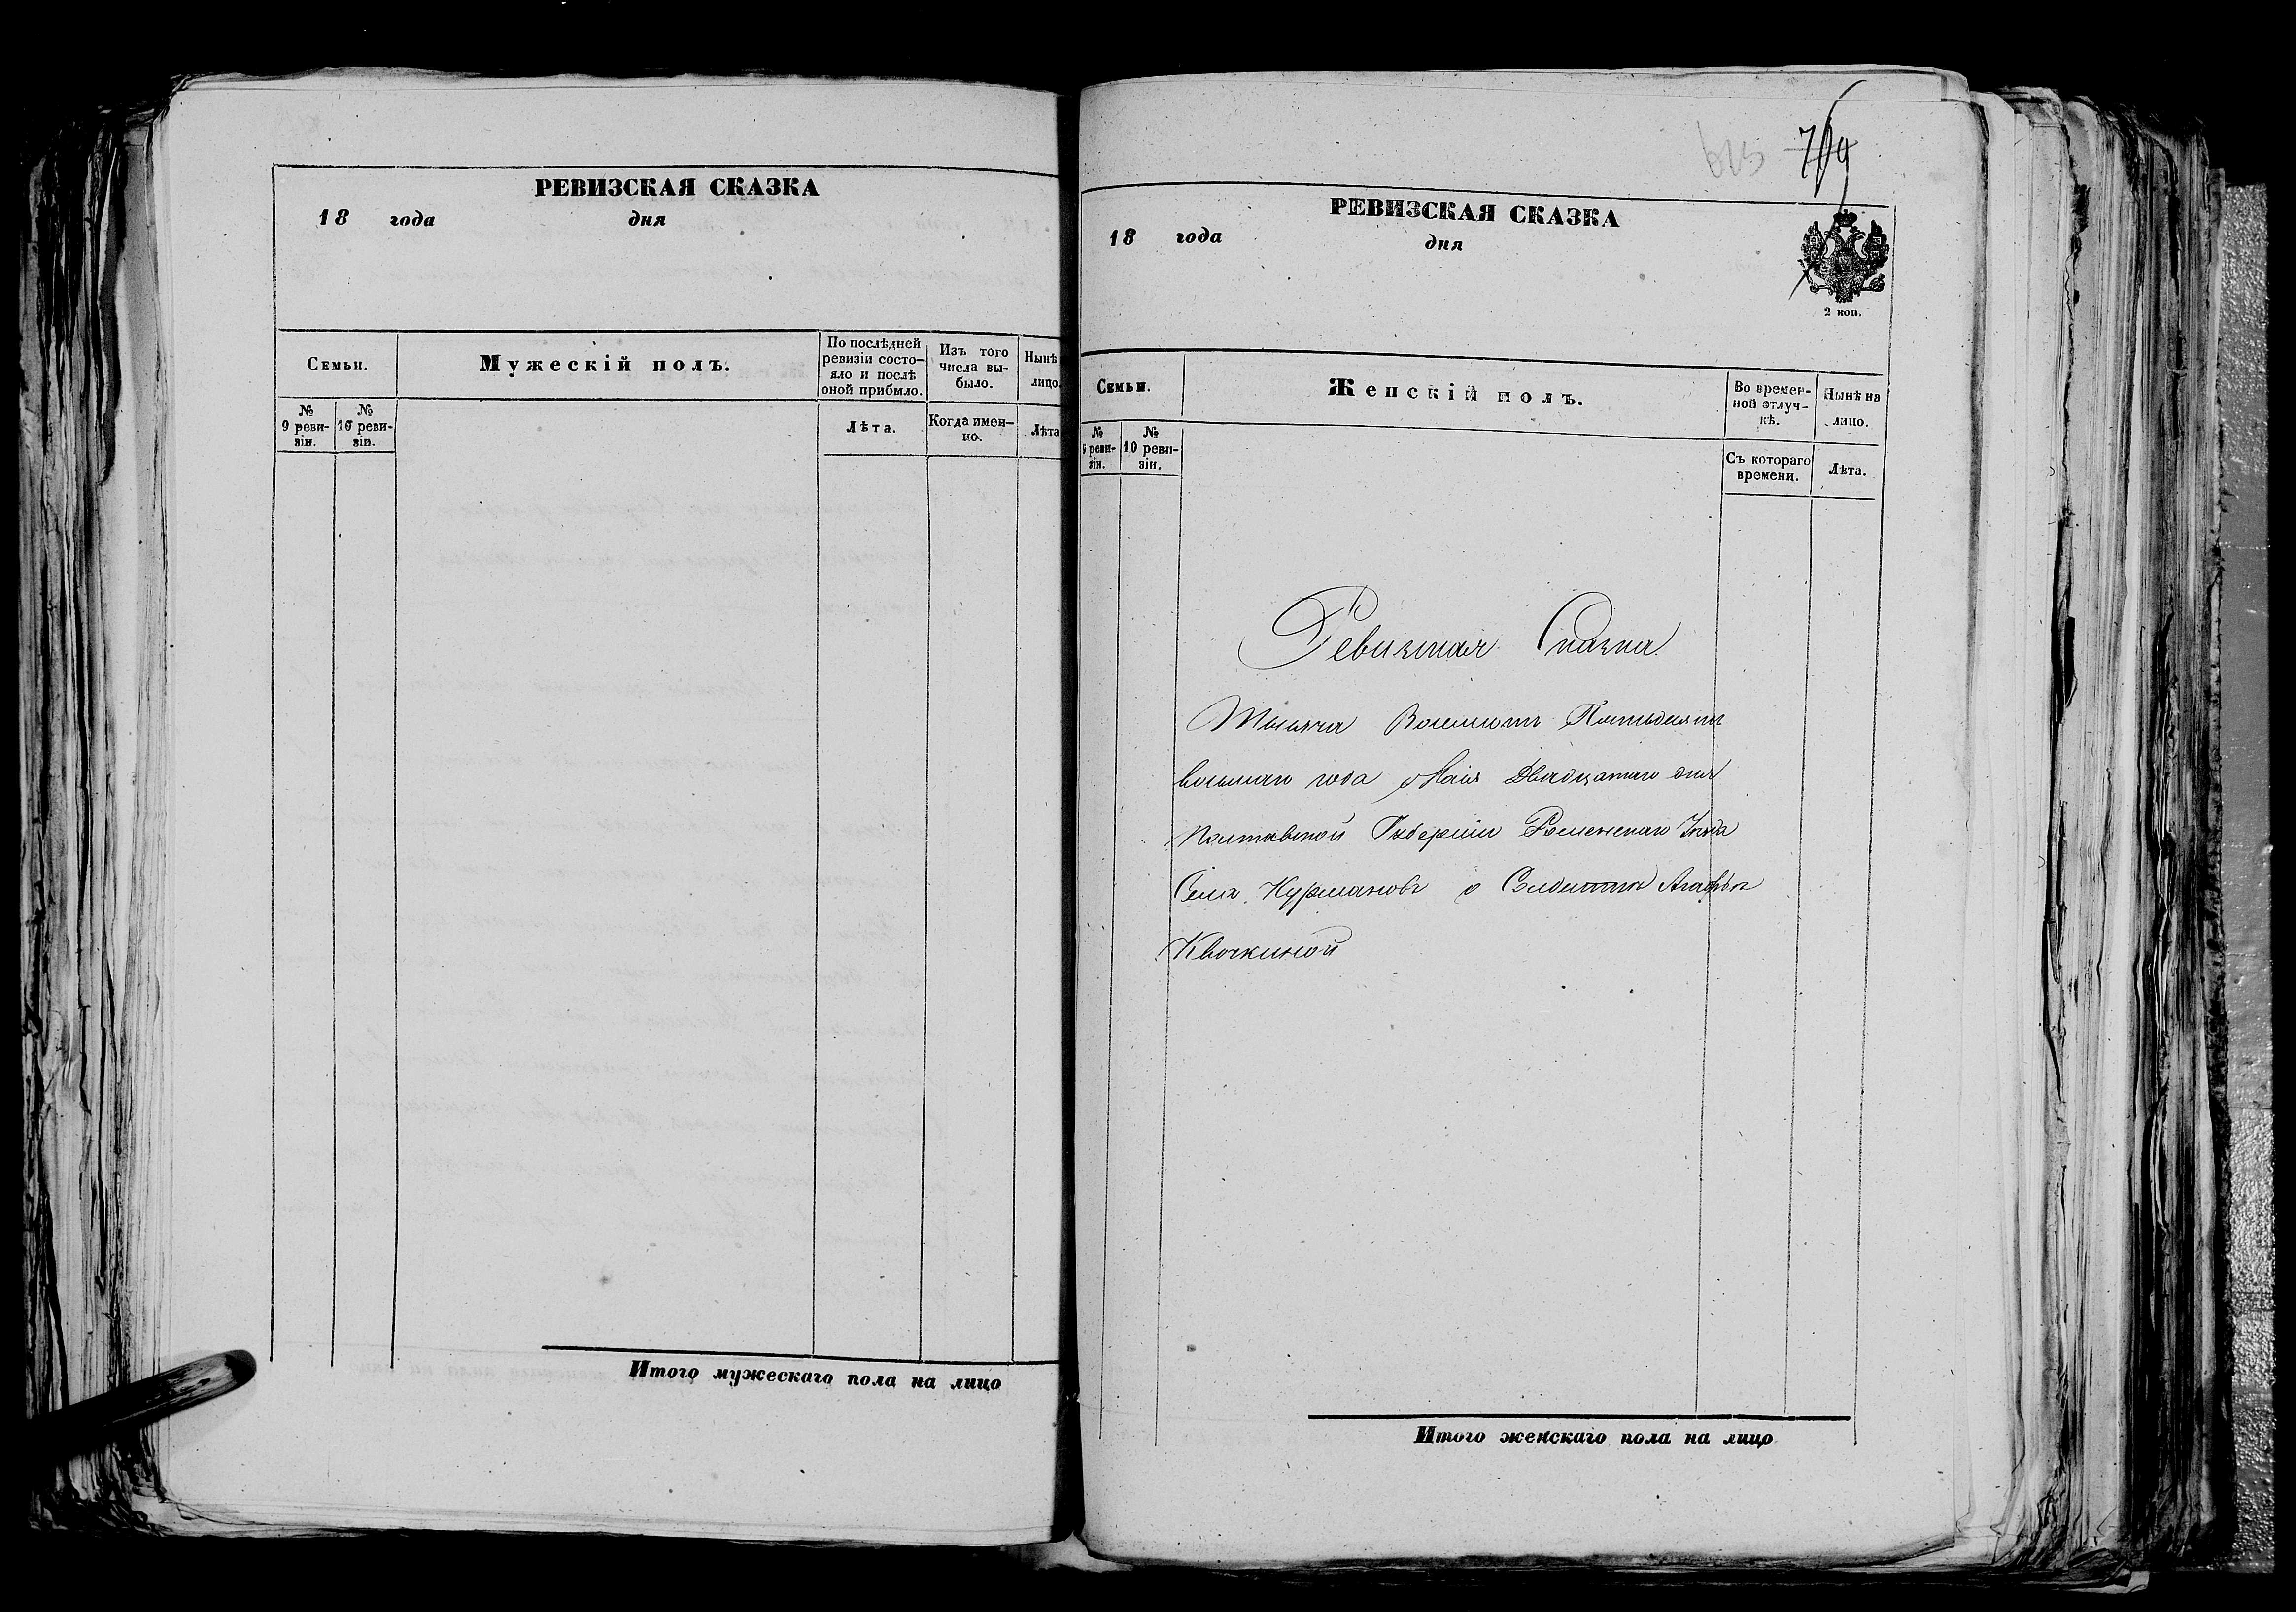 РЕВИЗСКАЯ СКАЗКА
18 года дня
Семьи.
Мужескiй полъ.
По послѣдней
ревизiи состо-
яло и послѣ
оной прибыло.
Изъ того
числа вы-
было.
Нынѣ
лицо.
№
9 реви-
зiи.
№
10 реви-
зiи.
Лѣта.
Когда имен-
но.
Лѣта
Итого мужескаго пола на лицо
615 719
РЕВИЗСКАЯ СКАЗКА
18 года дня
2 коп.
Семьи.
Женскiй полъ.
Во времен-
ной отлуч-
кѣ.
Нынѣ на
лицо.
№
9 реви-
зiи.
№
10 реви-
зiи.
Съ котораго
времени.
Лѣта.
Ревизская Сказка
Тысяча Восемсотъ Пятьдесятъ
восьмаго года Маiя Двадцатаго дня
Полтавской Губернiи Роменскаго Уѣзда
Села Курмановъ о Солдаткѣ Агафьѣ
Квочкиной
Итого женскаго пола на лицо